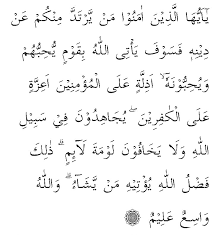 يٰٓاَيُّهَا الَّذِيْنَ اٰمَنُوْا مَنْ يَّرْتَدَّ مِنْكُمْ عَنْ
دِيْنِهٖ فَسَوْفَ يَأْتِى اللّٰهُ بِقَوْمٍ يُّحِبُّهُمْ
وَيُحِبُّوْنَهٗٓ ۙ اَذِلَّةٍ عَلَى الْمُؤْمِنِيْنَ اَعِزَّةٍ
عَلَى الْكٰفِرِيْنَ ۖ يُجَاهِدُوْنَ فِيْ سَبِيْلِ
اللّٰهِ وَلَا يَخَافُوْنَ لَوْمَةَ لَاۤىِٕمٍ ۗ ذٰلِكَ
فَضْلُ اللّٰهِ يُؤْتِيْهِ مَنْ يَّشَاۤءُ ۗ وَاللّٰهُ
وَاسِعٌ عَلِيْمٌ